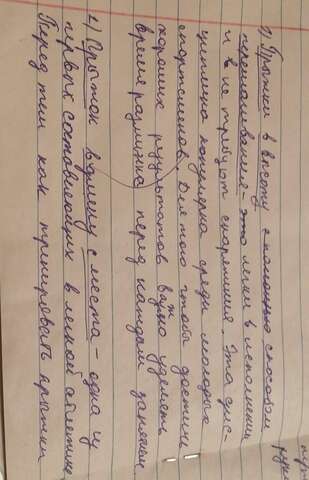 1) Прыжки в высоту с помощью способом
перешагивания - это легки в исполнении
и в не требуют снаряжения. Эта дис-
циплина популярна среди молодых
спортсменов. Для того чтобы достичь
хороших результатов важно уделять
время разминке перед каждым занятием.
2) Прыжок в длину с места - одна из
первых составляющих в легкой атлетике
Перед тем как тренировать прыжки